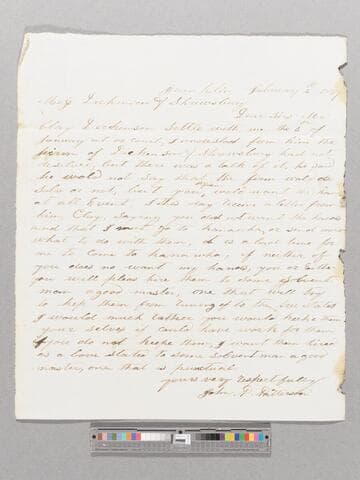 Franklin February 2
Mess Dickinson & Shrewsbury
Dear Sirs Mr
Clay Dickinson settle with me the 5 of
January at court, I understood from him the
firm of Dickinson & Shrewsbury had not
but there was a talk of it, he said
he wold not say that the firm wold
or not, but you wold want
at all Event. I this day recive a letter from
him, Clay, saying you did not want the hands
and that I must go to kanawha, or send word
what to do with them, it is a bad time for
me to come to kanawha, if neither of
you does no want my hands, you or Either
you will pleas hire them to some solvent
man a good master, one that will try
to kep them from runing of to the free states
I would much rather you would kepe them
your selves if could have work for them
if you do not kepe them, I want them hired
as above stated to some solvent man a good
master, one that is punctual
yours very respectfully
John P. Patterson